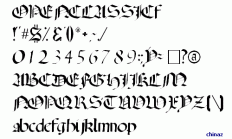 OPENCLASSICF
!"#$%&'()*+,-./
0123456789:;<=>?@
ABCDEFGHIJKLM
NOPQRSTUVWXYZ[\]
abcdefghijklmnop
chinaz